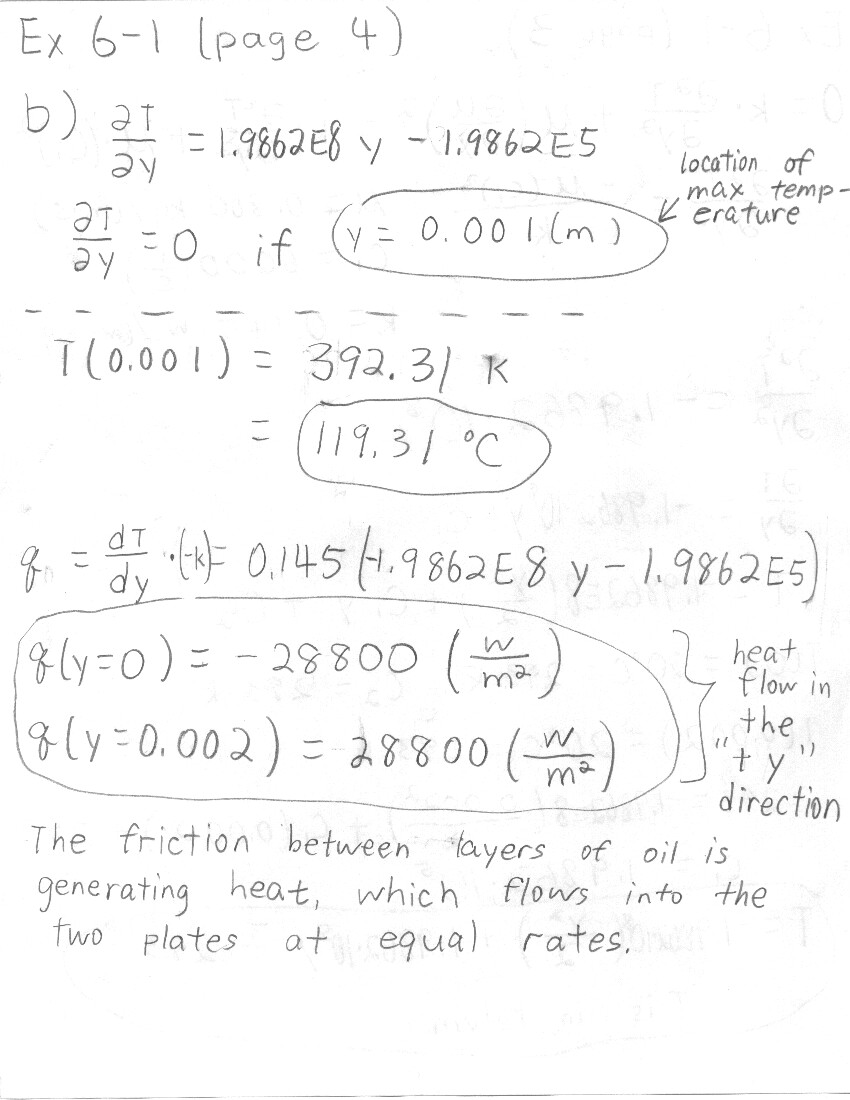 Ex 6-1 (page 4)
b) ∂T/∂y = 1.9862E8 y - 1.9862E5
location of
max temp-
erature
∂T/∂y = 0 if y = 0.001(m)
T(0.001) = 392.31 K
= 119.31 °C
q = dT/dy ·(-k)= 0.145(-1.9862E8 y - 1.9862E5)
q(y=0) = -28800 (W/m²)
q(y=0.002) = 28800 (W/m²)
heat
flow in
the
"+ y"
direction
The friction between layers of oil is
generating heat, which flows into the
two plates at equal rates.